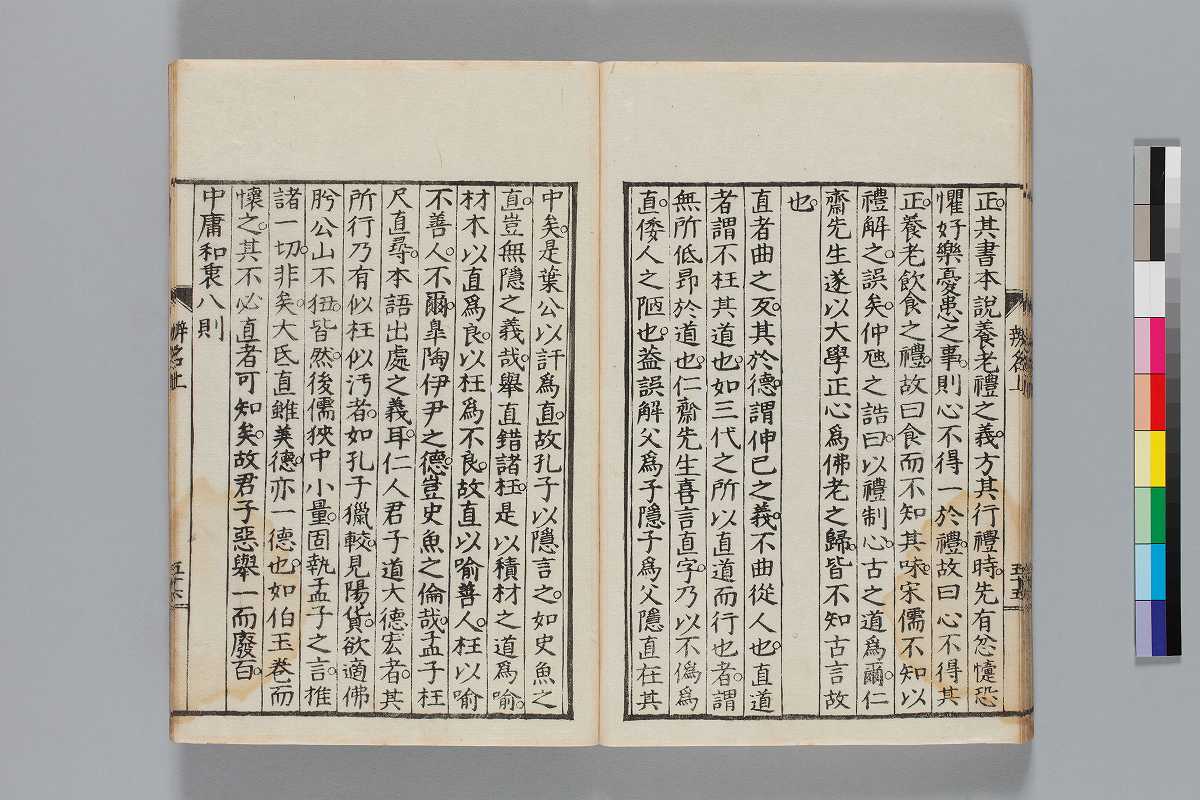 正。其書本說養老禮之義。方其行禮時。先有忿懥恐
懼好樂憂患之事。則心不得一於禮。故曰心不得其
正。養老飲食之禮。故曰食而不知其味。宋儒不知以
禮解之。誤矣。仲虺之誥曰。以禮制心。古之道爲爾。仁
齋先生遂以大學正心爲佛老之歸。皆不知古言故
也。
直者曲之反。其於德。謂伸己之義。不曲從人也。直道
者謂不枉其道也。如三代之所以直道而行也者。謂
無所低昂於道也。仁齋先生喜言直字。乃以不僞爲
直。倭人之陋也。蓋誤解父爲子隱子爲父隱直在其
辨名上
五十五
中矣。是葉公以訐爲直。故孔子以隱言之。如史魚之
直。豈無隱之義哉。舉直錯諸枉。是以積材之道爲喻。
材木以直爲良。以枉爲不良。故直以喻善人。枉以喻
不善人。不爾。皐陶伊尹之德。豈史魚之倫哉。孟子枉
尺直尋。本語出處之義耳。仁人君子道大德宏者。其
所行乃有似枉似汚者。如孔子獵較。見陽貨。欲適佛
肸公山不狃。皆然。後儒狹中小量。固執孟子之言。推
諸一切。非矣。大氐直雖美德。亦一德也。如伯玉卷而
懷之。其不必直者可知矣。故君子惡舉一而廢百。
中庸和衷八則
辨名上
五十六